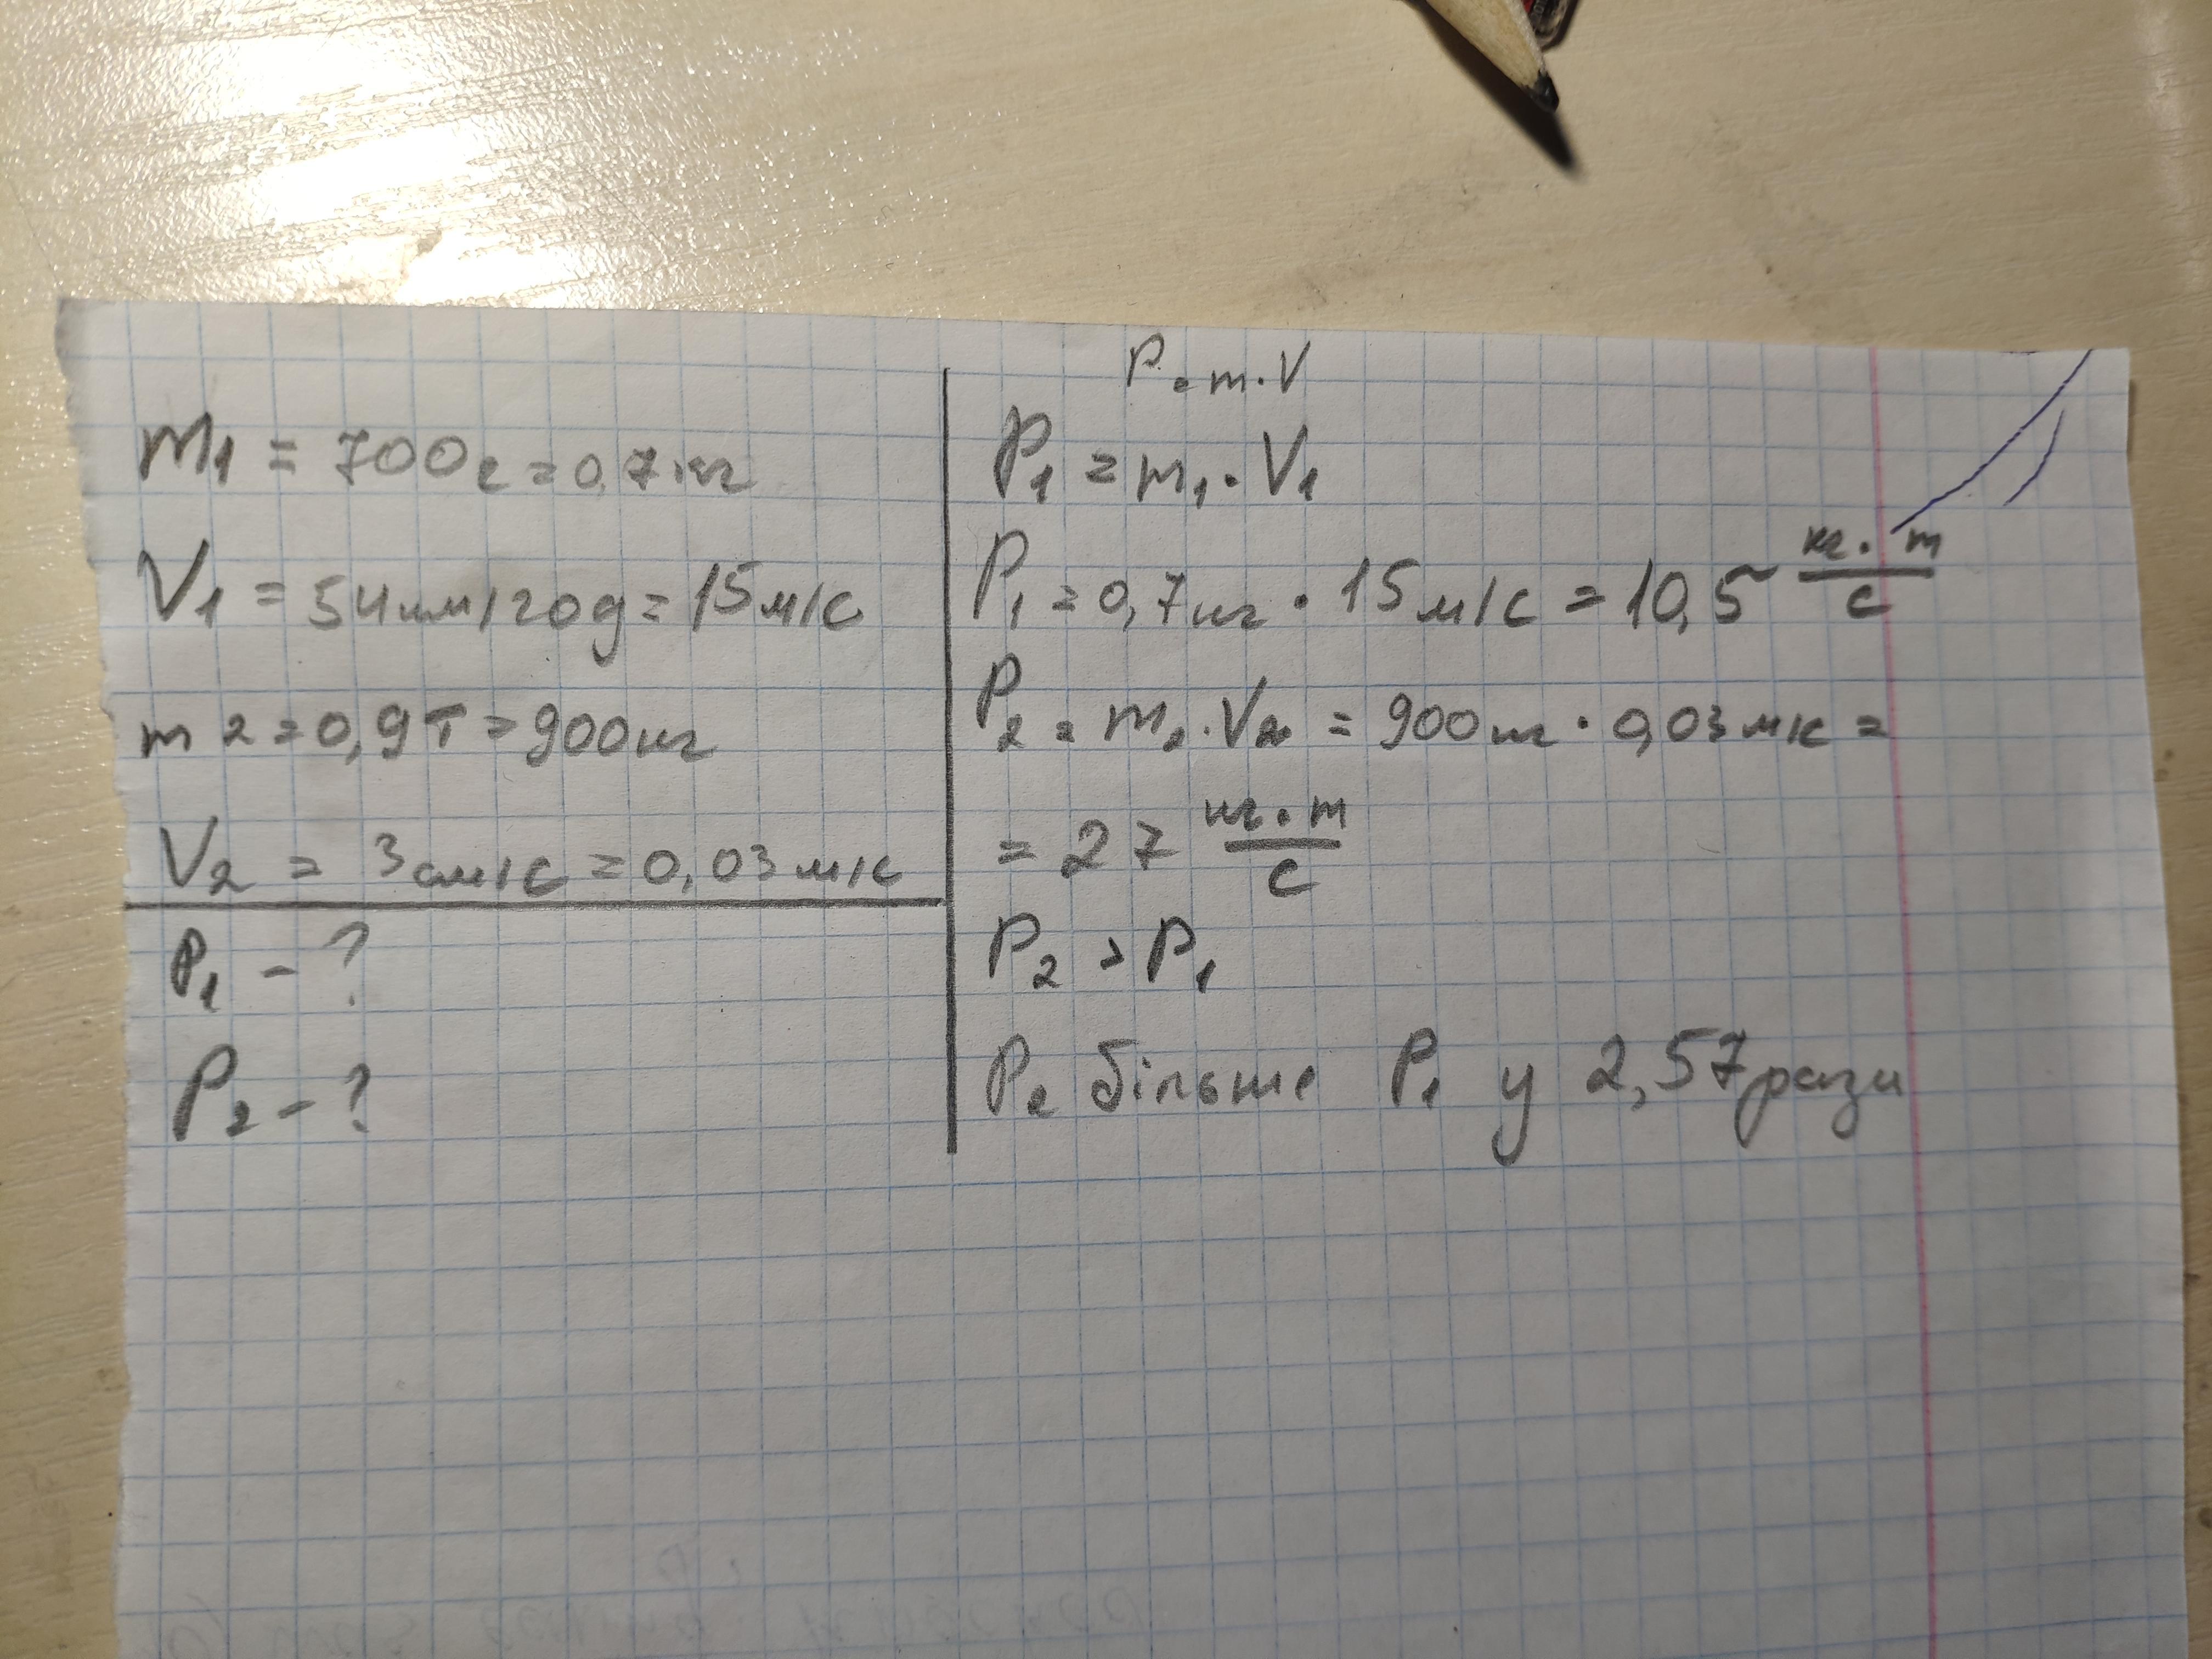 m₁ = 700г = 0,7кг
V₁ = 54км/год = 15м/с
m2 = 0,9т = 900кг
V₂ = 3см/с = 0,03м/с
P₁ - ?
P₂ - ?
P = m · V
P₁ = m₁ · V₁
P₁ = 0,7кг · 15м/с = 10,5 кг · m / с
P₂ = m₂ · V₂ = 900кг · 0,03м/с =
= 27 кг · m / с
P₂ > P₁
P₂ більше P₁ у 2,57 рази